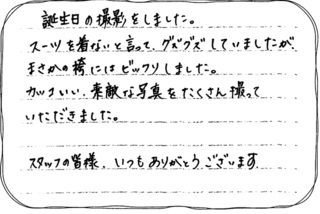 誕生日の撮影をしました。
スーツを着ないと言って、グズグズしていましたが
まさかの袴にはビックリしました。
カッコいい、素敵な写真をたくさん撮って
いただきました。
スタッフの皆様、いつもありがとうございます